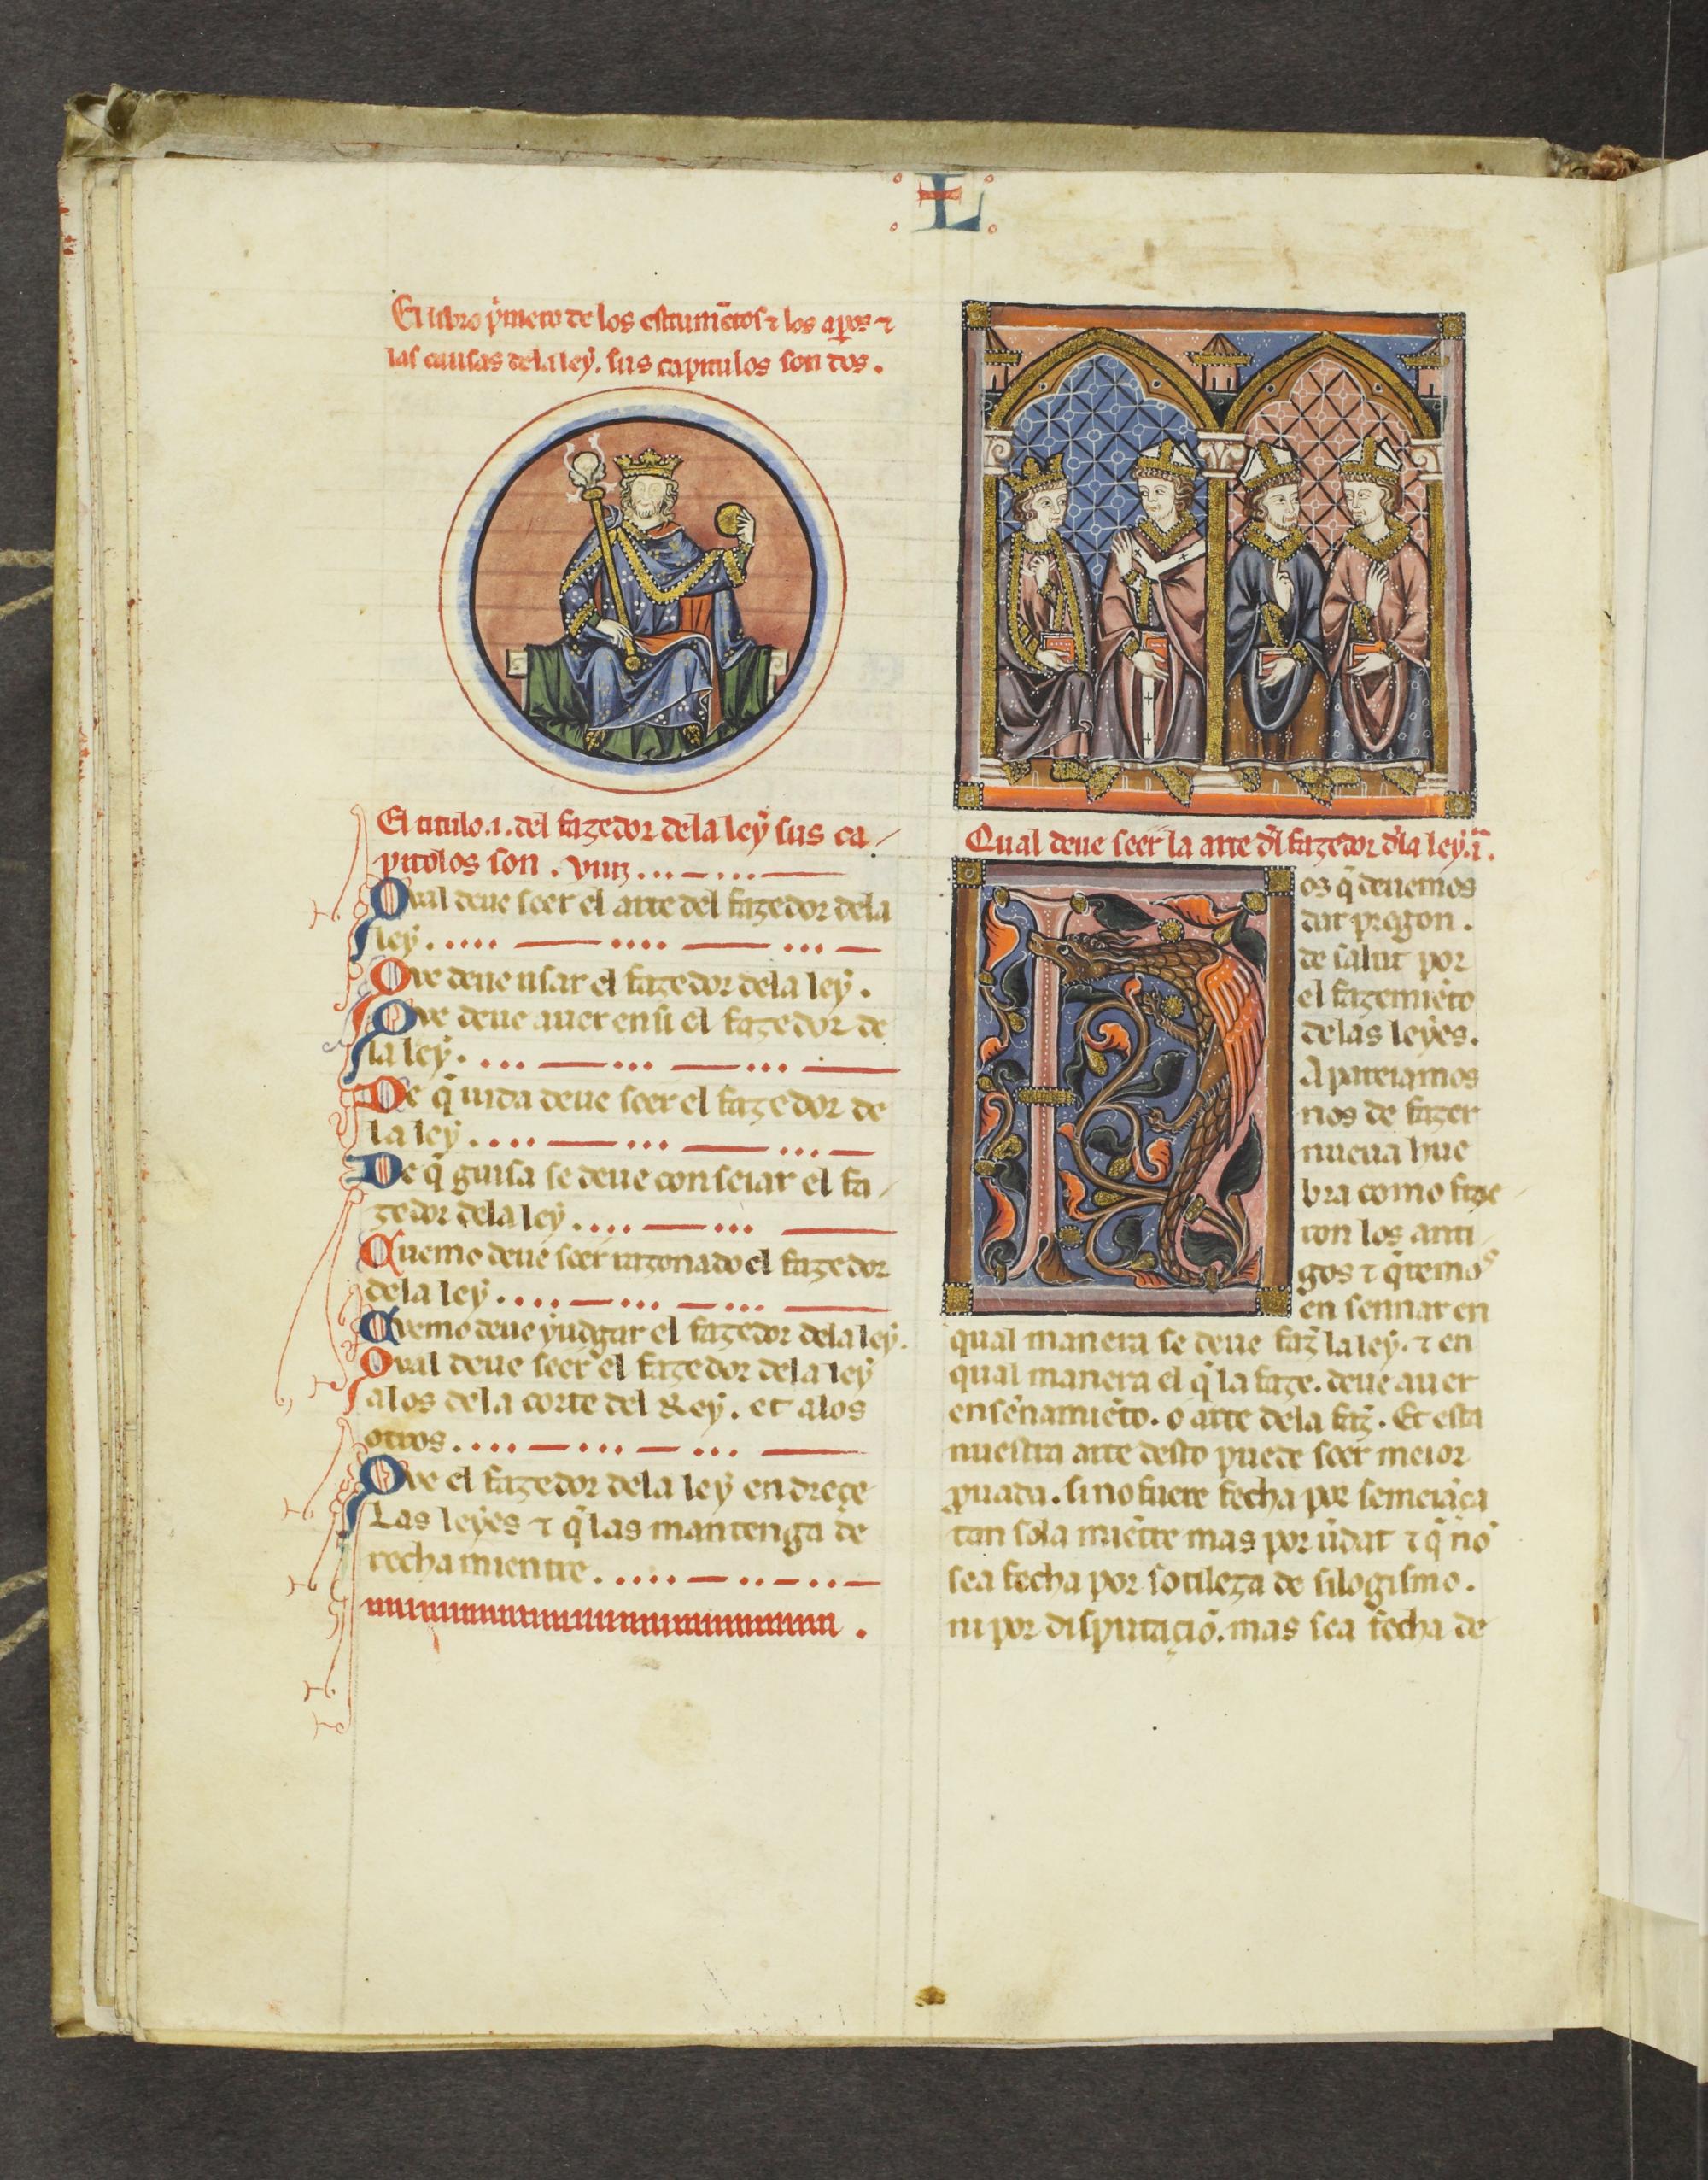 L
El libro p̍mero de los estrumẽtos ⁊ los apos ⁊
las causas dela ley. sus capitulos son dos.
El titulo .i. del fazedor dela ley sus ca
pitolos son . viiij...
Qval deue seer el arte del fazedor dela
ley....
Qve deue usar el fazedor dela ley.
Qve deue auer en si el fazedor de
la ley....
De q̄ uida deue seer el fazedor de
la ley....
De q̄ guisa se deue conseiar el fa
zedor dela ley....
Quemo deue seer razonado el fazedor
dela ley....
Qvemo deue yudgar el fazedor dela ley.
Qval deue seer el fazedor dela ley
alos dela corte del Rey. et alos
otros....
Qve el fazedor dela ley endreçe
Las leyes ⁊ q̄ las mantenga de
recha mientre.....
Qual deue seer la arte dl̄ fazedor dl̄a ley .i.
N os q̄ deuemos
dar pregon.
de salut por
el fazemiẽto
delas leyes.
Apareiamos
nos de fazer
nueua hue
bra como faze
ron los anti
gos ⁊ q̍remos
en sennar en
qual manera se deue faz̄ la ley. ⁊ en
qual manera el q̄ la faze. deue auer
ensẽnamiẽto. o arte dela faz̄. Et esta
nuestra arte desto puede seer meior
ꝓuada. si no fuere fecha por semeiãça
tan sola miẽtre mas por ũdat ⁊ q̄ nõ
sea fecha por sotileza de silogismo.
ni por disputaçiõ. mas sea fecha de